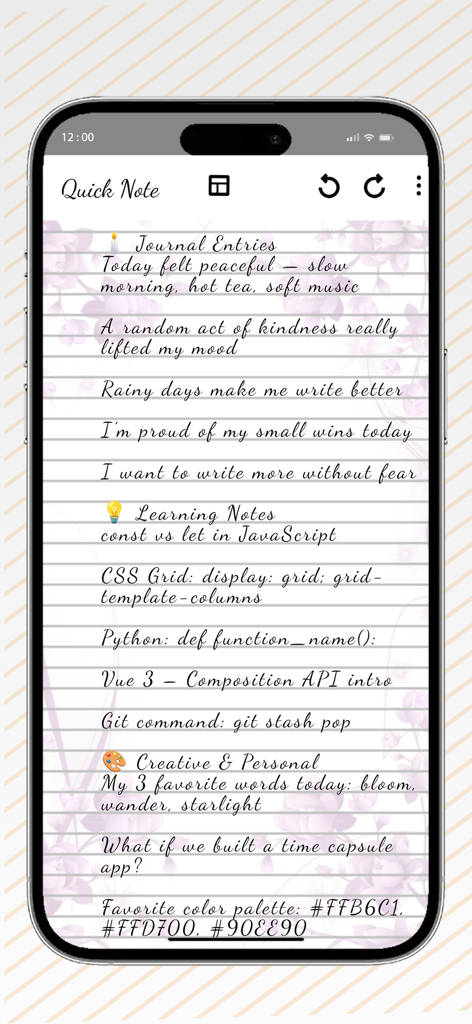 12:00
Quick Note
🕯️ Journal Entries
Today felt peaceful — slow
morning, hot tea, soft music
A random act of kindness really
lifted my mood
Rainy days make me write better
I'm proud of my small wins today
I want to write more without fear
💡 Learning Notes
const vs let in JavaScript
CSS Grid: display: grid; grid-
template-columns
Python: def function_name():
Vue 3 – Composition API intro
Git command: git stash pop
🎨 Creative & Personal
My 3 favorite words today: bloom,
wander, starlight
What if we built a time capsule
app?
Favorite color palette: #FFB6C1,
#FFD700, #90EE90